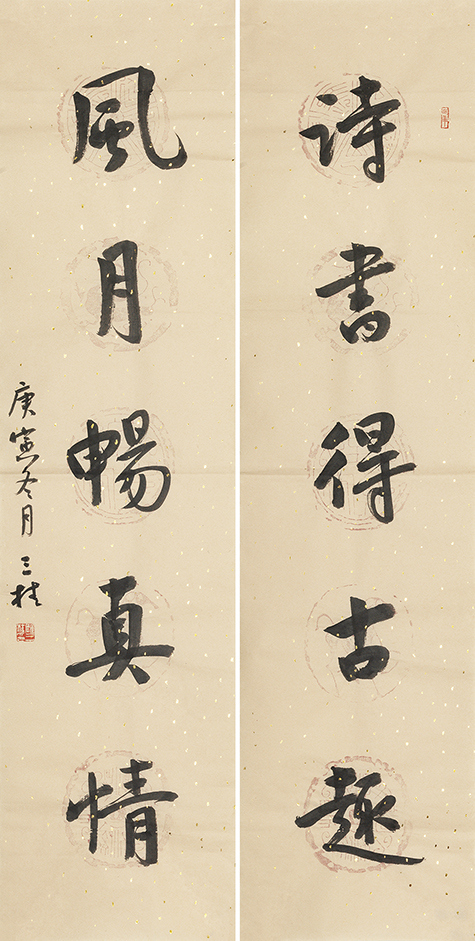 詩書得古趣
風月暢真情
庚寅冬月 三桂